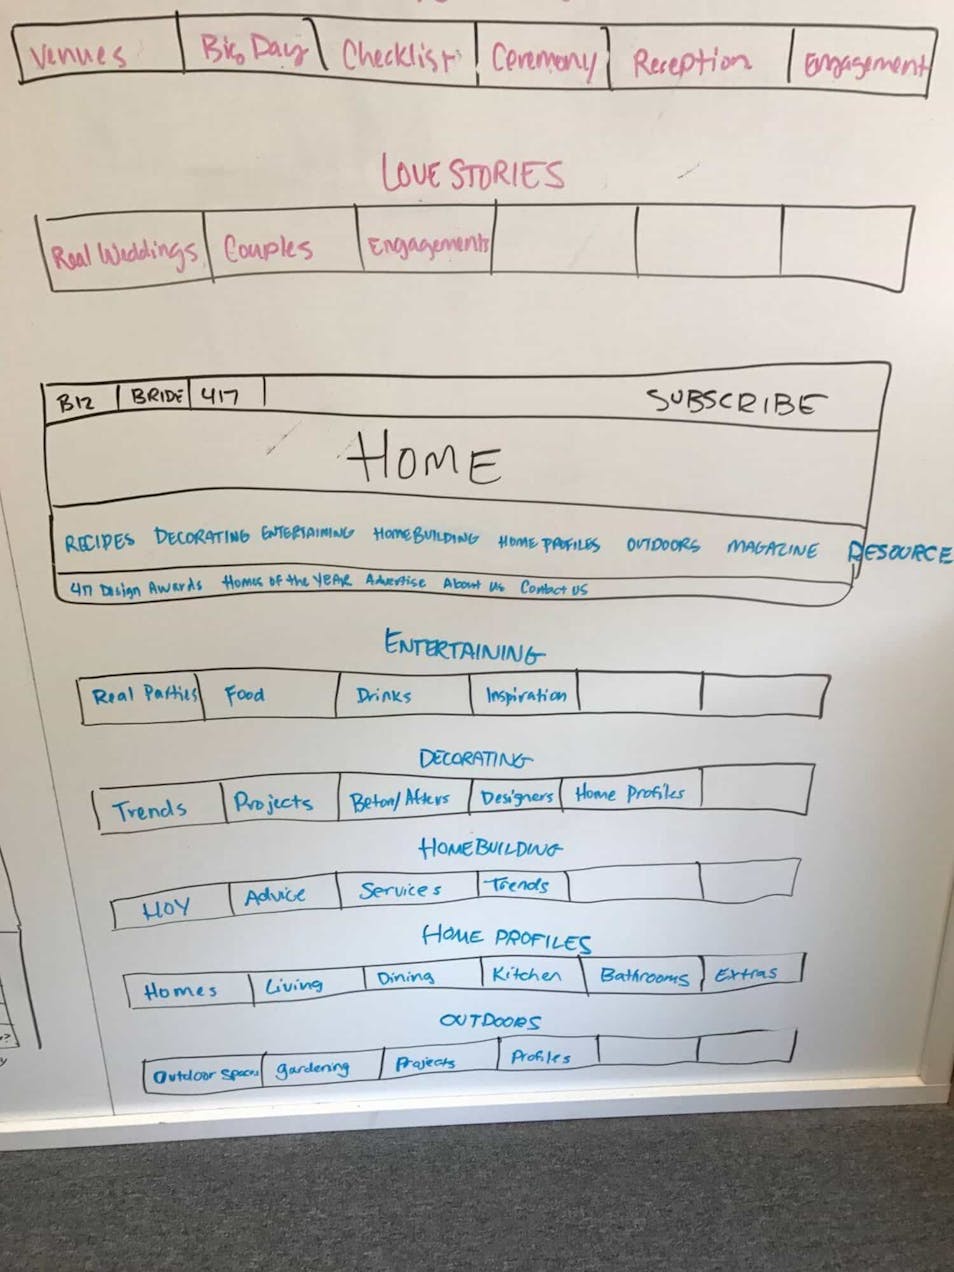 Venues Big Day Checklist Ceremony Reception Engagement
LOVE STORIES
Real Weddings Couples Engagements
B12 BRIDE 417 SUBSCRIBE
HOME
RECIPES DECORATING ENTERTAINING HOMEBUILDING HOME PROFILES OUTDOORS MAGAZINE RESOURCE
417 Design Awards Homes of the YEAR Advertise About Us Contact US
ENTERTAINING
Real Parties Food Drinks Inspiration
DECORATING
Trends Projects Designers Home Profiles
HOMEBUILDING
HOY Advice Services Trends
HOME PROFILES
Homes Living Dining Kitchen Bathrooms Extras
OUTDOORS
Outdoor Spaces Gardening Projects Profiles